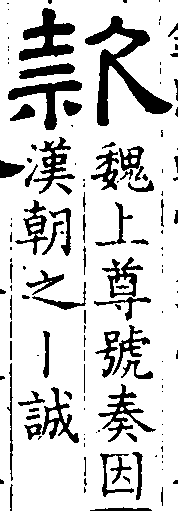 款
魏上尊號奏因
漢朝之丨誠